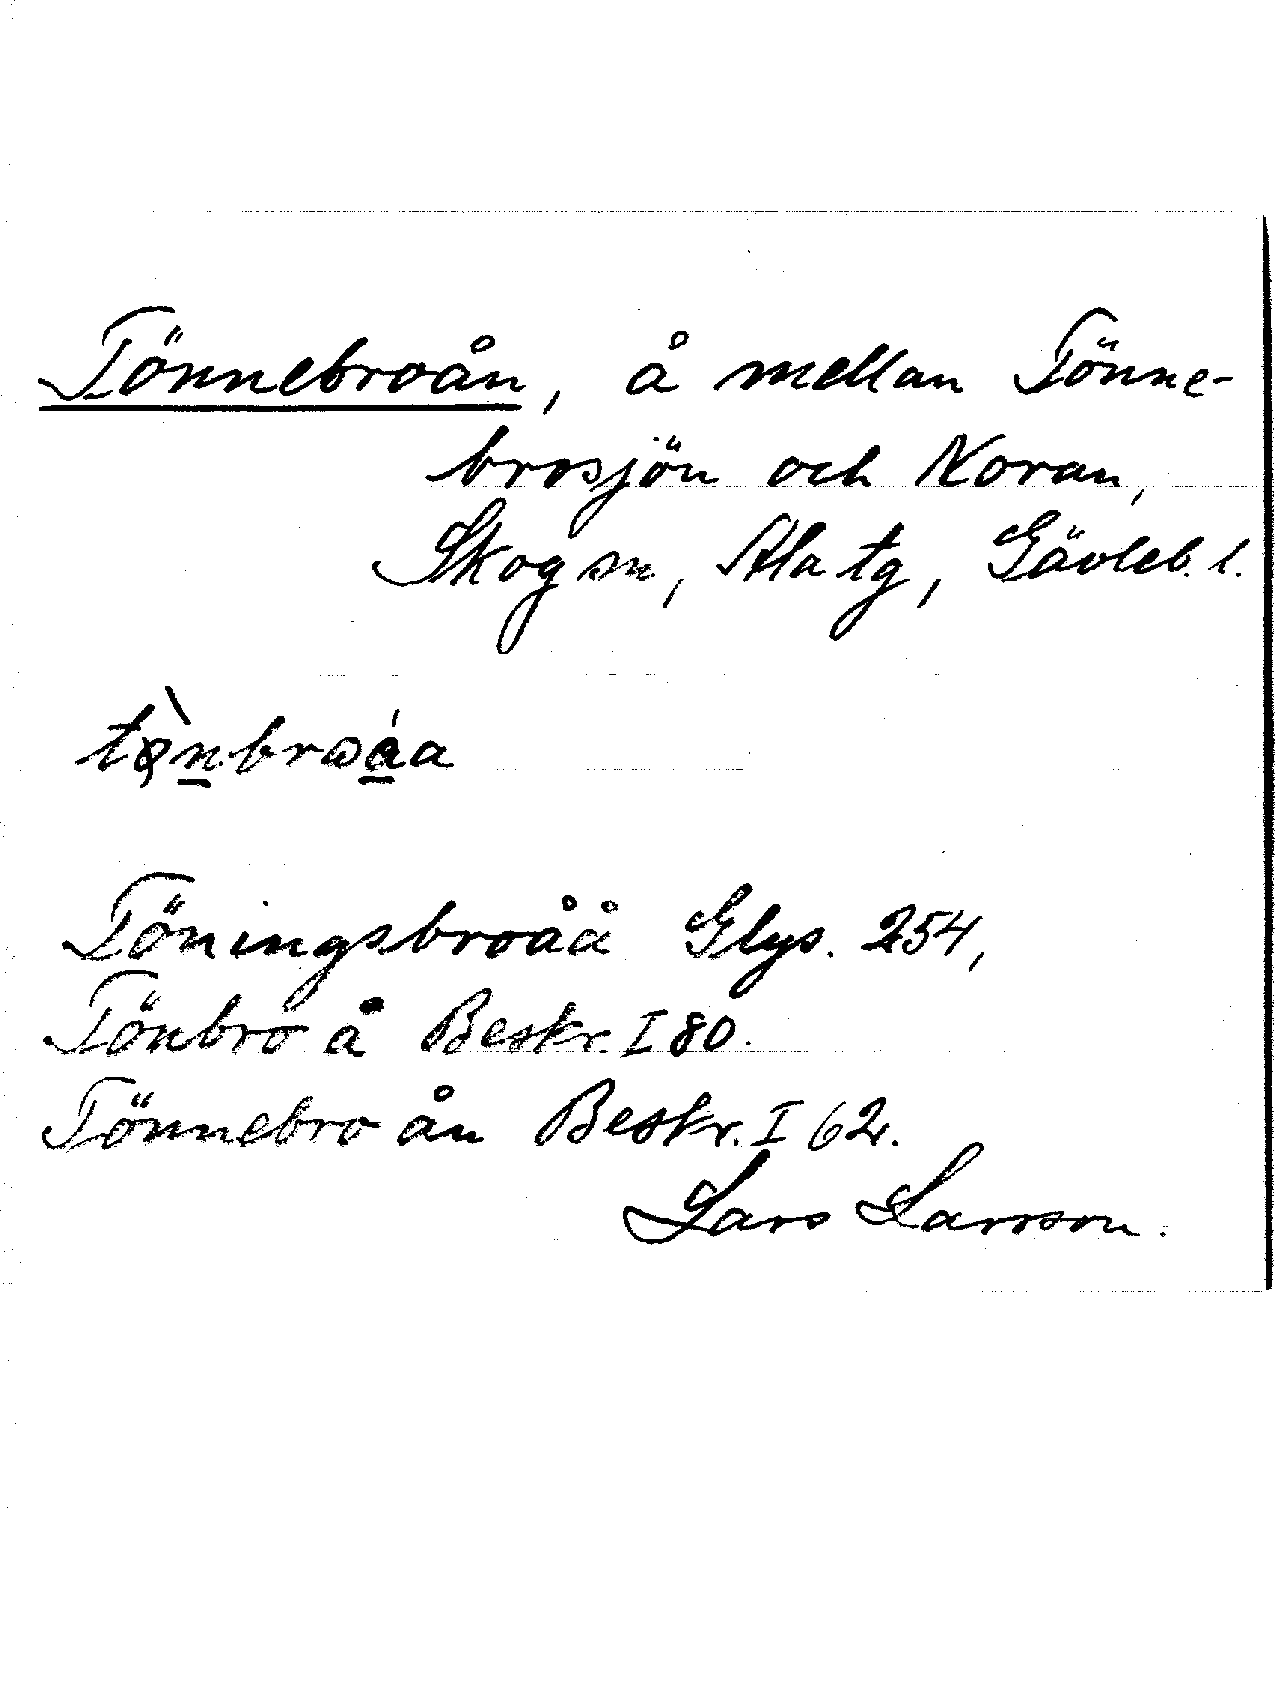 Tönnebroån, å mellan Tönne-
brosjön och Noran,
Skog sn, Ala tg, Gävleb. l.
Töningsbroåå Glys. 254,
Tönbro å Beskr. I 80.
Tönnebro ån Beskr. I 62.
Lars Larsson.